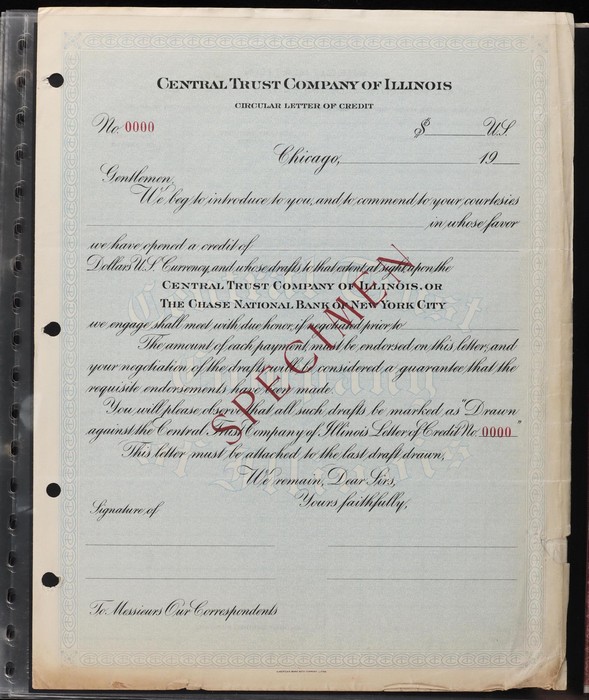 CENTRAL TRUST COMPANY OF ILLINOIS
CIRCULAR LETTER OF CREDIT
No. 0000 $ U.S.
Chicago, 19
Gentlemen,
We beg to introduce to you, and to commend to your courtesies
in whose favor
we have opened a credit of
Dollars U.S. Currency, and whose drafts to that extent at sight upon the
CENTRAL TRUST COMPANY OF ILLINOIS, OR
THE CHASE NATIONAL BANK OF NEW YORK CITY
we engage shall meet with due honor, if negotiated prior to
The amount of each payment must be endorsed on this letter, and
your negotiation of the drafts will be considered a guarantee that the
requisite endorsements have been made.
You will please observe that all such drafts be marked as "Drawn
against the Central Trust Company of Illinois Letter of Credit No. 0000"
This letter must be attached to the last draft drawn,
We remain, Dear Sirs,
Yours faithfully,
Signature of
To Messieurs Our Correspondents
SPECIMEN
Central Trust
Company
of Illinois